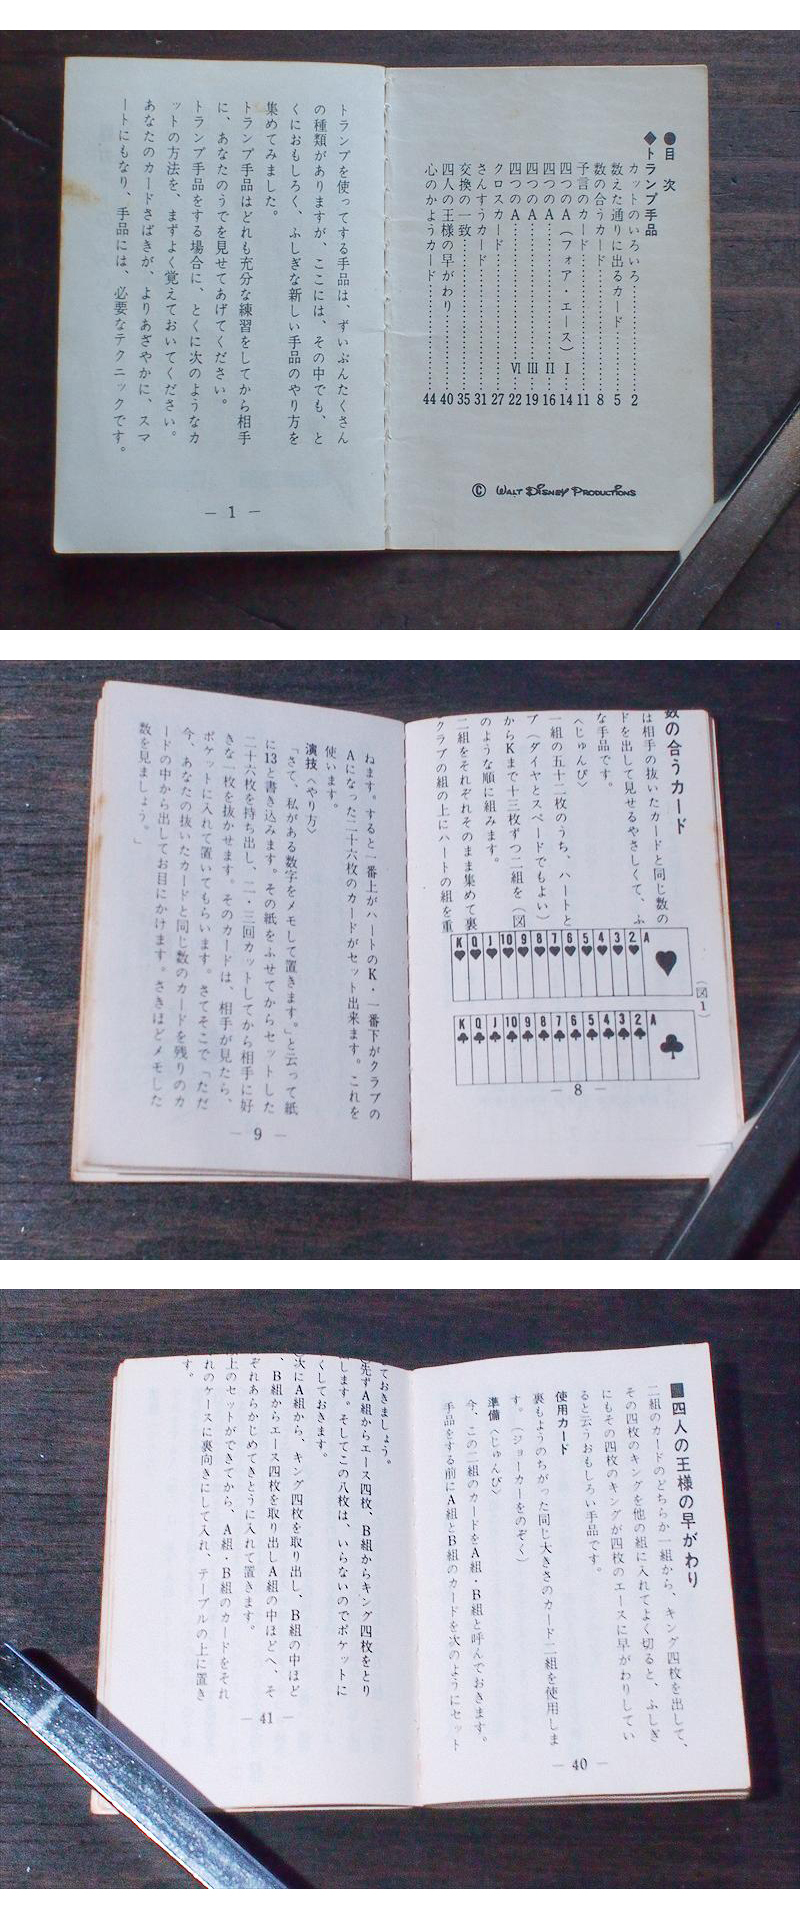 ●目次
◆トランプ手品
カットのいろいろ…………2
数えた通りに出るカード…………5
数の合うカード…………8
予言のカード…………11
四つのA（フォア・エース）Ⅰ…………14
四つのA…………Ⅱ…………16
四つのA…………Ⅲ…………19
四つのA…………Ⅵ…………22
クロスカード…………27
さんすうカード…………31
交換の一致…………35
四人の王様の早がわり…………40
心のかようカード…………44
© WALT DISNEY PRODUCTIONS
トランプを使ってする手品は、ずいぶんたくさん
の種類がありますが、ここには、その中でも、と
くにおもしろく、ふしぎな新しい手品のやり方を
集めてみました。
トランプ手品はどれも充分な練習をしてから相手
に、あなたのうでを見せてあげてください。
トランプ手品をする場合に、とくに次のようなカ
ットの方法を、まずよく覚えておいてください。
あなたのカードさばきが、よりあざやかに、スマ
ートにもなり、手品には、必要なテクニックです。
― 1 ―
数の合うカード
は相手の抜いたカードと同じ数の
ドを出して見せるやさしくて、ふ
な手品です。
〈じゅんび〉
一組の五十二枚のうち、ハートと
ブ（ダイヤとスペードでもよい）
からKまで十三枚ずつ二組を（図
のような順に組みます。
二組をそれぞれそのまま集めて裏
クラブの組の上にハートの組を重
（図1）
K Q J 10 9 8 7 6 5 4 3 2 A
K Q J 10 9 8 7 6 5 4 3 2 A
― 8 ―
ねます。すると一番上がハートのK・一番下がクラブの
Aになった二十六枚のカードがセット出来ます。これを
使います。
演技〈やり方〉
「さて、私がある数字をメモして置きます。」と云って紙
に13と書き込みます。その紙をふせてからセットした
二十六枚を持ち出し、二・三回カットしてから相手に好
きな一枚を抜かせます。そのカードは、相手が見たら、
ポケットに入れて置いてもらいます。さてそこで「ただ
今、あなたの抜いたカードと同じ数のカードを残りのカ
ードの中から出してお目にかけます。さきほどメモした
数を見ましょう。」
― 9 ―
■四人の王様の早がわり
二組のカードのどちらか一組から、キング四枚を出して、
その四枚のキングを他の組に入れてよく切ると、ふしぎ
にもその四枚のキングが四枚のエースに早がわりしてい
ると云うおもしろい手品です。
使用カード
裏もようのちがった同じ大きさのカード二組を使用しま
す。（ジョーカーをのぞく）
準備〈じゅんび〉
今、この二組のカードをA組・B組と呼んでおきます。
手品をする前にA組とB組のカードを次のようにセット
― 40 ―
ておきましょう。
先ずA組からエース四枚、B組からキング四枚をとり
します。そしてこの八枚は、いらないのでポケットに
くしておきます。
次にA組から、キング四枚を取り出し、B組の中ほど
、B組からエース四枚を取り出しA組の中ほどへ、そ
ぞれあらかじめてきとうに入れて置きます。
上のセットができてから、A組・B組のカードをそれ
れのケースに裏向きにして入れ、テーブルの上に置き
す。
― 41 ―